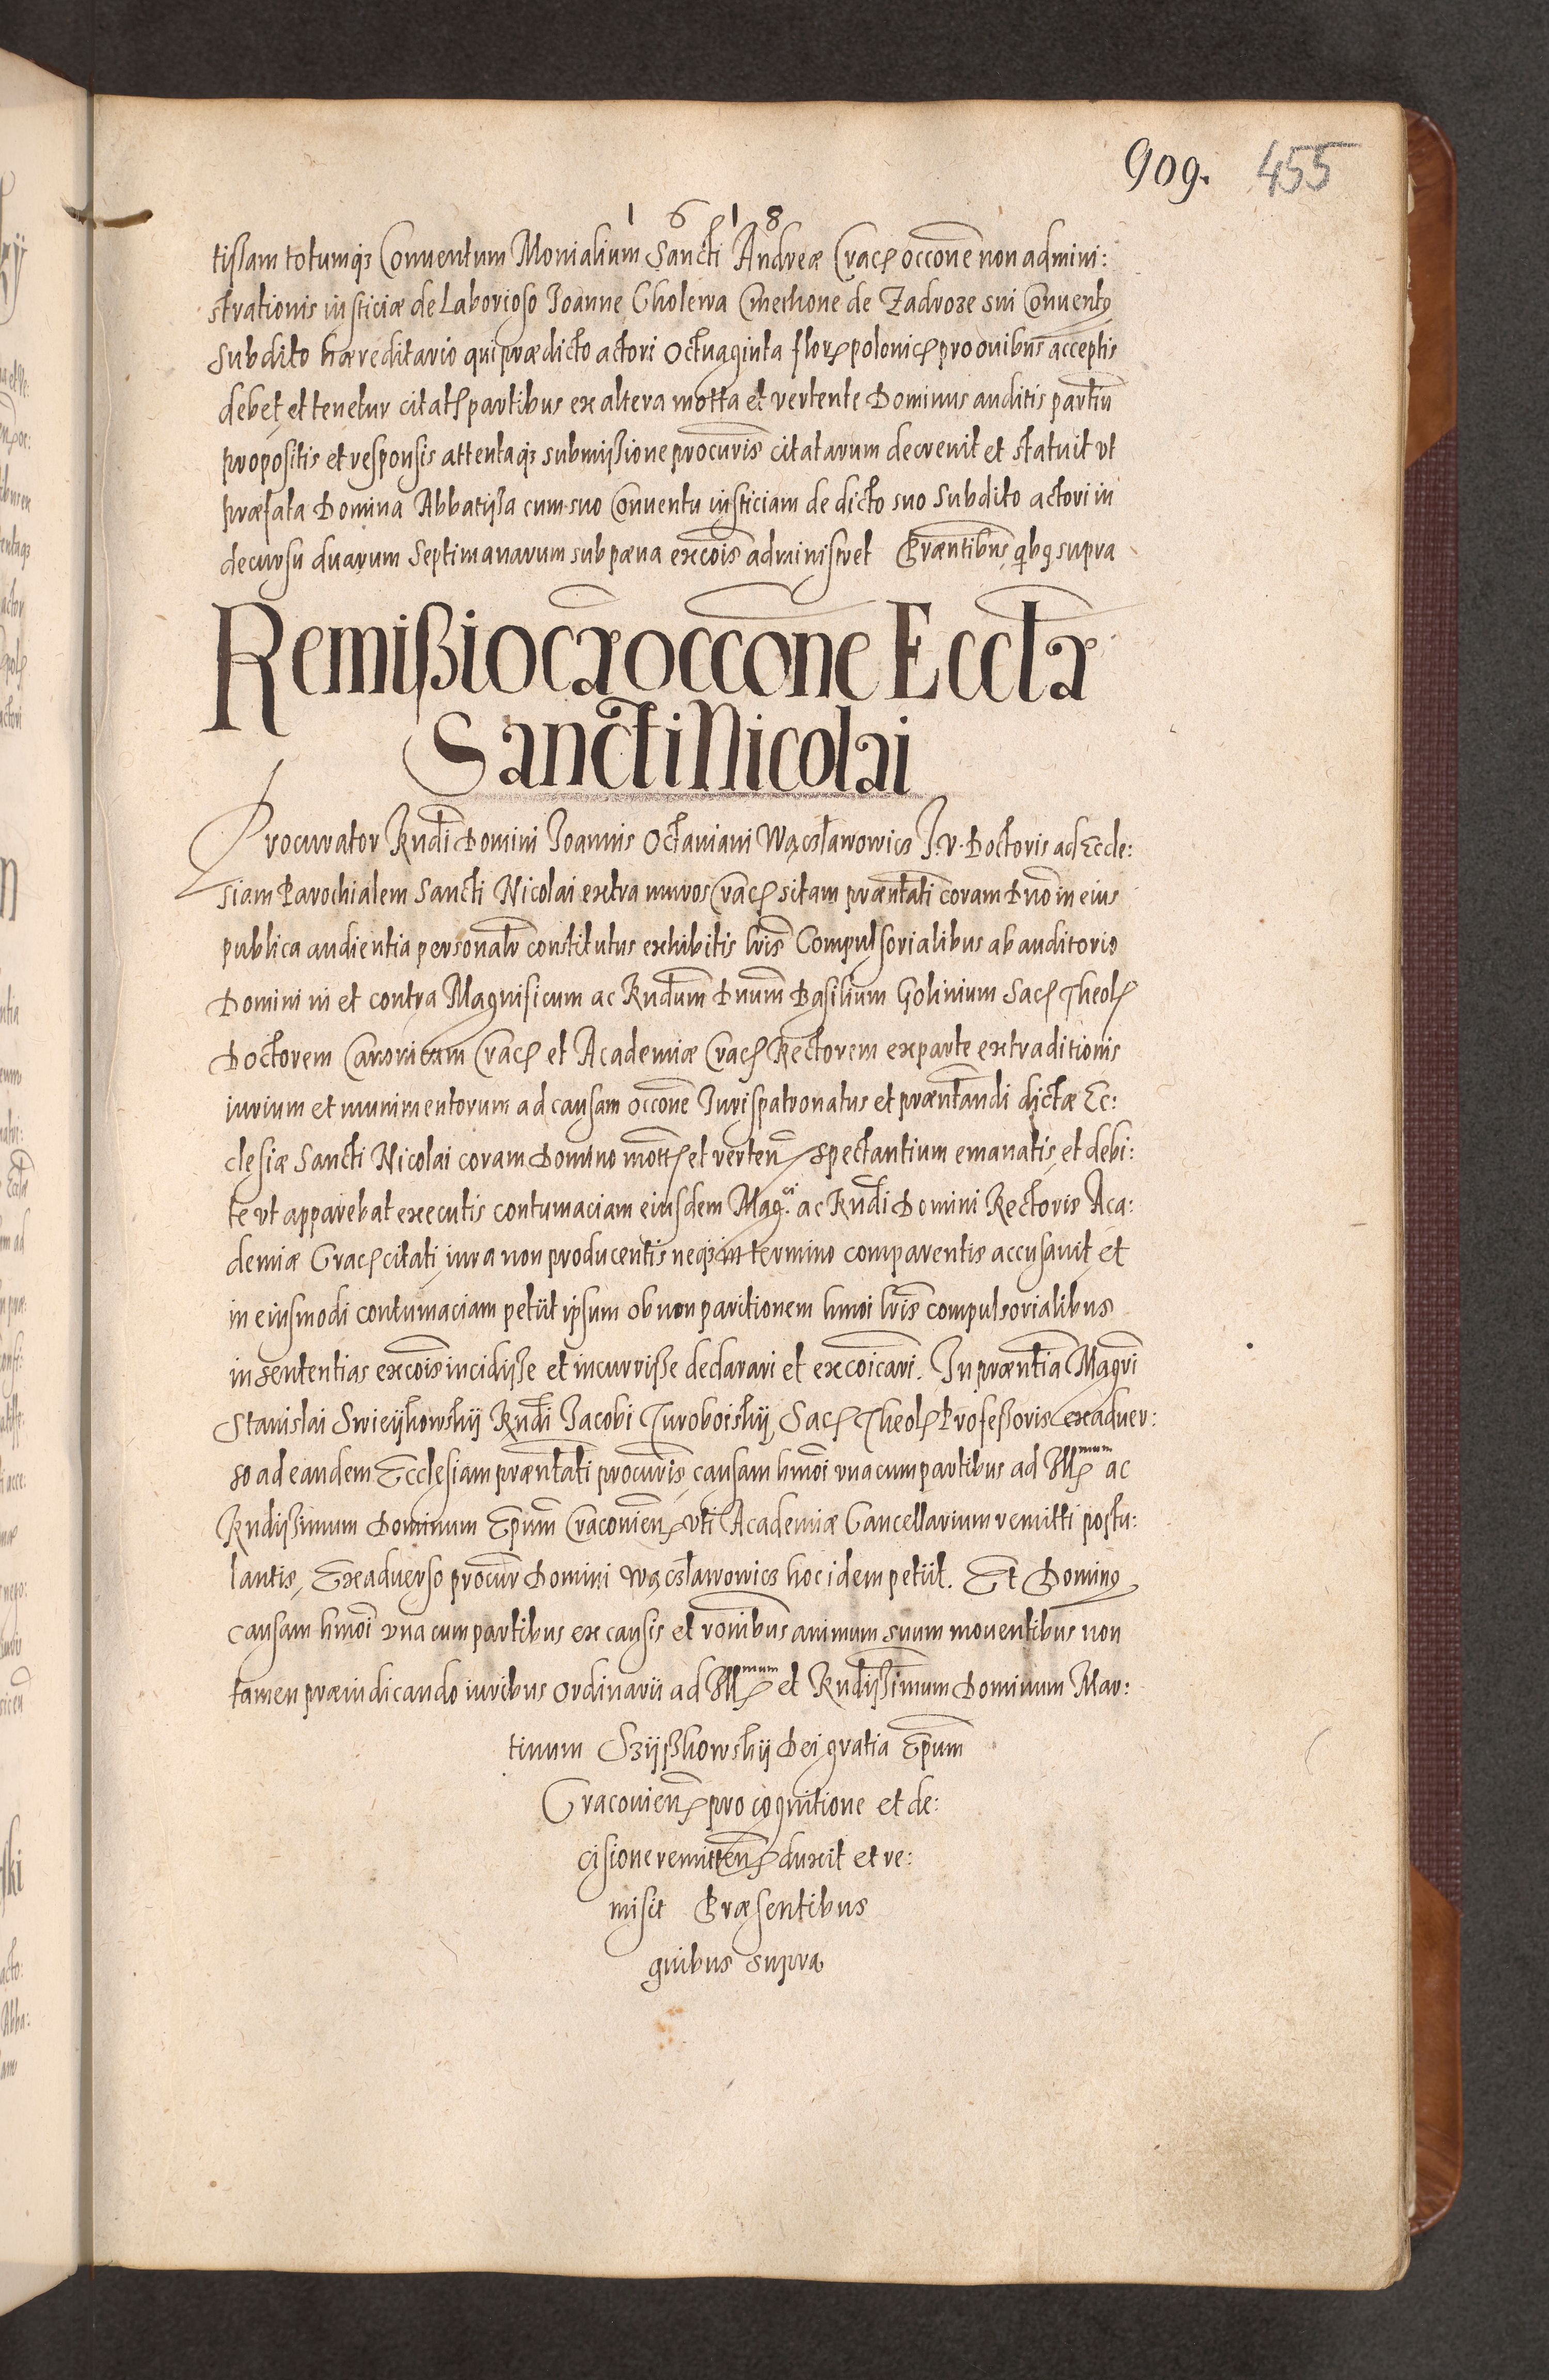 909. 455
1618
tißam totumqȝ Conuentum Monialium Sancti Andreæ Crac: occone non admini:
strationis iusticiæ de Laborioso Joanne Cholewa Cmethone de Zadroze sui Conuentus
subdito hæreditario qui prædicto actori Octuaginta flor: polonic: pro ouibus acceptis
debet et tenetur citat: partibus ex altera motta et vertente Dominus auditis partiũ
propositis et responsis attentaqȝ submißione procuris citatarum decreuit et statuit vt
præfata Domina Abbatißa cum suo Conuentu iusticiam de dicto suo subdito actori in
decursu duarum Septimanarum sub pæna excois administret Præntibus qbus supra
Remißio cæ occone Ecclæ
Sancti Nicolai
Procurator Rndi Domini Joannis Octauiani Wącsławowics J. v. Doctoris ad Eccle:
siam Parochialem Sancti Nicolai extra muros Crac: sitam præntati coram Dno in eius
publica audientia personalr constitutus exhibitis lris Compulsorialibus ab auditorio
Domini in et contra Magnificum ac Rndum Dnum Basilium Golinium Sac: Theol:
Doctorem Canonicum Crac: et Academiæ Crac: Rectorem ex parte extraditionis
iurium et munimentorum ad causam occone Jurispatronatus et præntandi dictæ Ec:
clesiæ Sancti Nicolai coram Domino mott: et verten: spectantium emanatis et debi:
te vt apparebat executis contumaciam eiusdem Mag.ci ac Rndi Domini Rectoris Aca:
demiæ Crac: citati iura non producentis neqȝ in termino comparentis accusauit et
in eiusmodi contumaciam petiit ipsum ob non paritionem hmoi lris compulsorialibus
in sententias excois incidiße et incurriße declarari et excoicari. In præntia Magri
Stanislai Swieijkowskij Rndi Jacobi Turoboiskij Sac: Theol: Profeßoris ex aduer:
so ad eandem Ecclesiam præntati procuris causam hmoi vna cum partibus ad Illmum ac
Rndißimum Dominum Epum Cracouien: vti Academiæ Cancellarium remitti postu:
lantis, Ex aduerso procur Domini Wącsławowics hoc idem petiit. Et Dominus
causam hmoi vna cum partibus ex causis et ronibus animum suum mouentibus non
tamen præiudicando iuribus ordinarii ad Illmum et Rndißimum Dominum Mar:
tinum Szijßkowskij Dei gratia Epum
Cracouien: pro cognitione et de:
cisione remitten: duxit et re:
misit Præsentibus
quibus supra